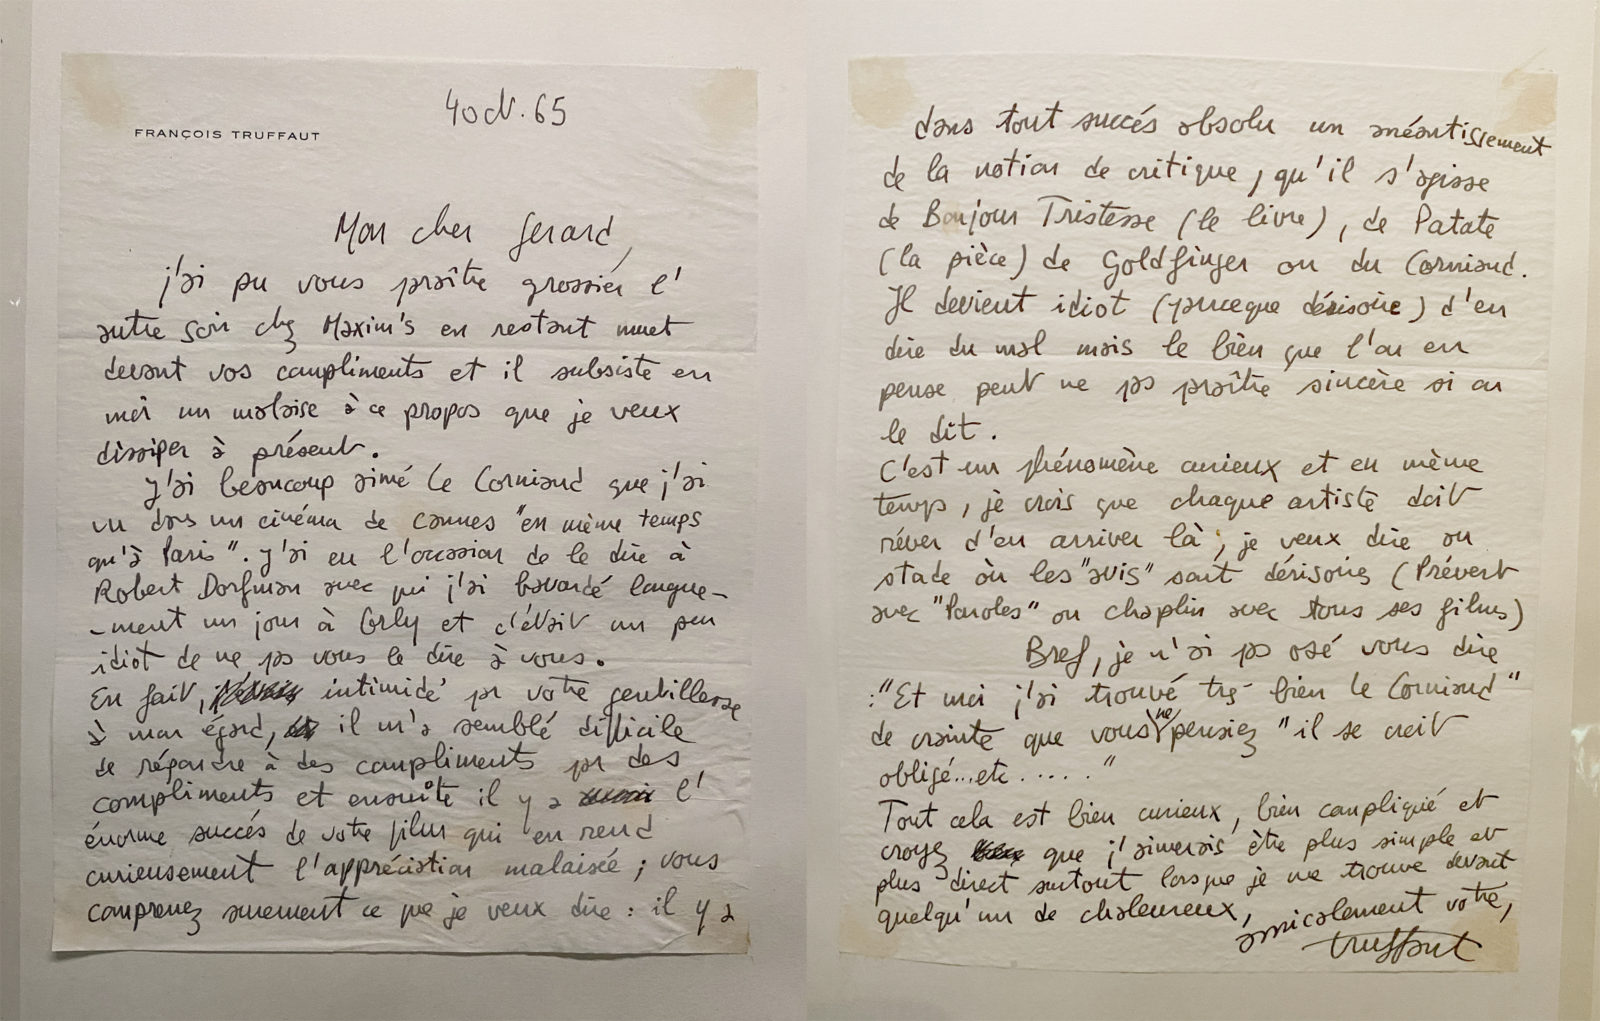 4 oct. 65
FRANÇOIS TRUFFAUT
Mon cher Gerard,
j'ai pu vous paraître grossier l'
autre soir chez Maxim's en restant muet
devant vos compliments et il subsiste en
moi un malaise à ce propos que je veux
dissiper à présent.
J'ai beaucoup aimé le Corniaud que j'ai
vu dans un cinéma de Cannes "en même temps
qu'à Paris". J'ai eu l'occasion de le dire à
Robert Dorfman avec qui j'ai bavardé longue-
-ment un jour à Orly et c'était un peu
idiot de ne pas vous le dire à vous.
En fait, intimidé par votre gentillesse
à mon égard, il m'a semblé difficile
de répondre à des compliments par des
compliments et ensuite il y a l'
énorme succés de votre film qui en rend
curieusement l'appréciation malaisée ; vous
comprenez surement ce que je veux dire : il y a
dans tout succés absolu un anéantissement
de la notion de critique, qu'il s'agisse
de Bonjour Tristesse (le livre), de Patate
(la pièce) de Goldfinger ou du Corniaud.
Il devient idiot (parceque dérisoire) d'en
dire du mal mais le bien que l'on en
pense peut ne pas paraître sincère si on
le dit.
C'est un phénomène curieux et en même
temps, je crois que chaque artiste doit
rêver d'en arriver là ; je veux dire au
stade où les "avis" sont dérisoires (Prévert
avec "Paroles" ou Chaplin avec tous ses films)
Bref, je n'ai pas osé vous dire
: "Et moi j'ai trouvé très bien le Corniaud"
de crainte que vous ne pensiez "il se croit
obligé...etc....."
Tout cela est bien curieux, bien compliqué et
croyez que j'aimerais être plus simple et
plus direct surtout lorsque je me trouve devant
quelqu'un de chaleureux,
amicalement votre,
truffaut